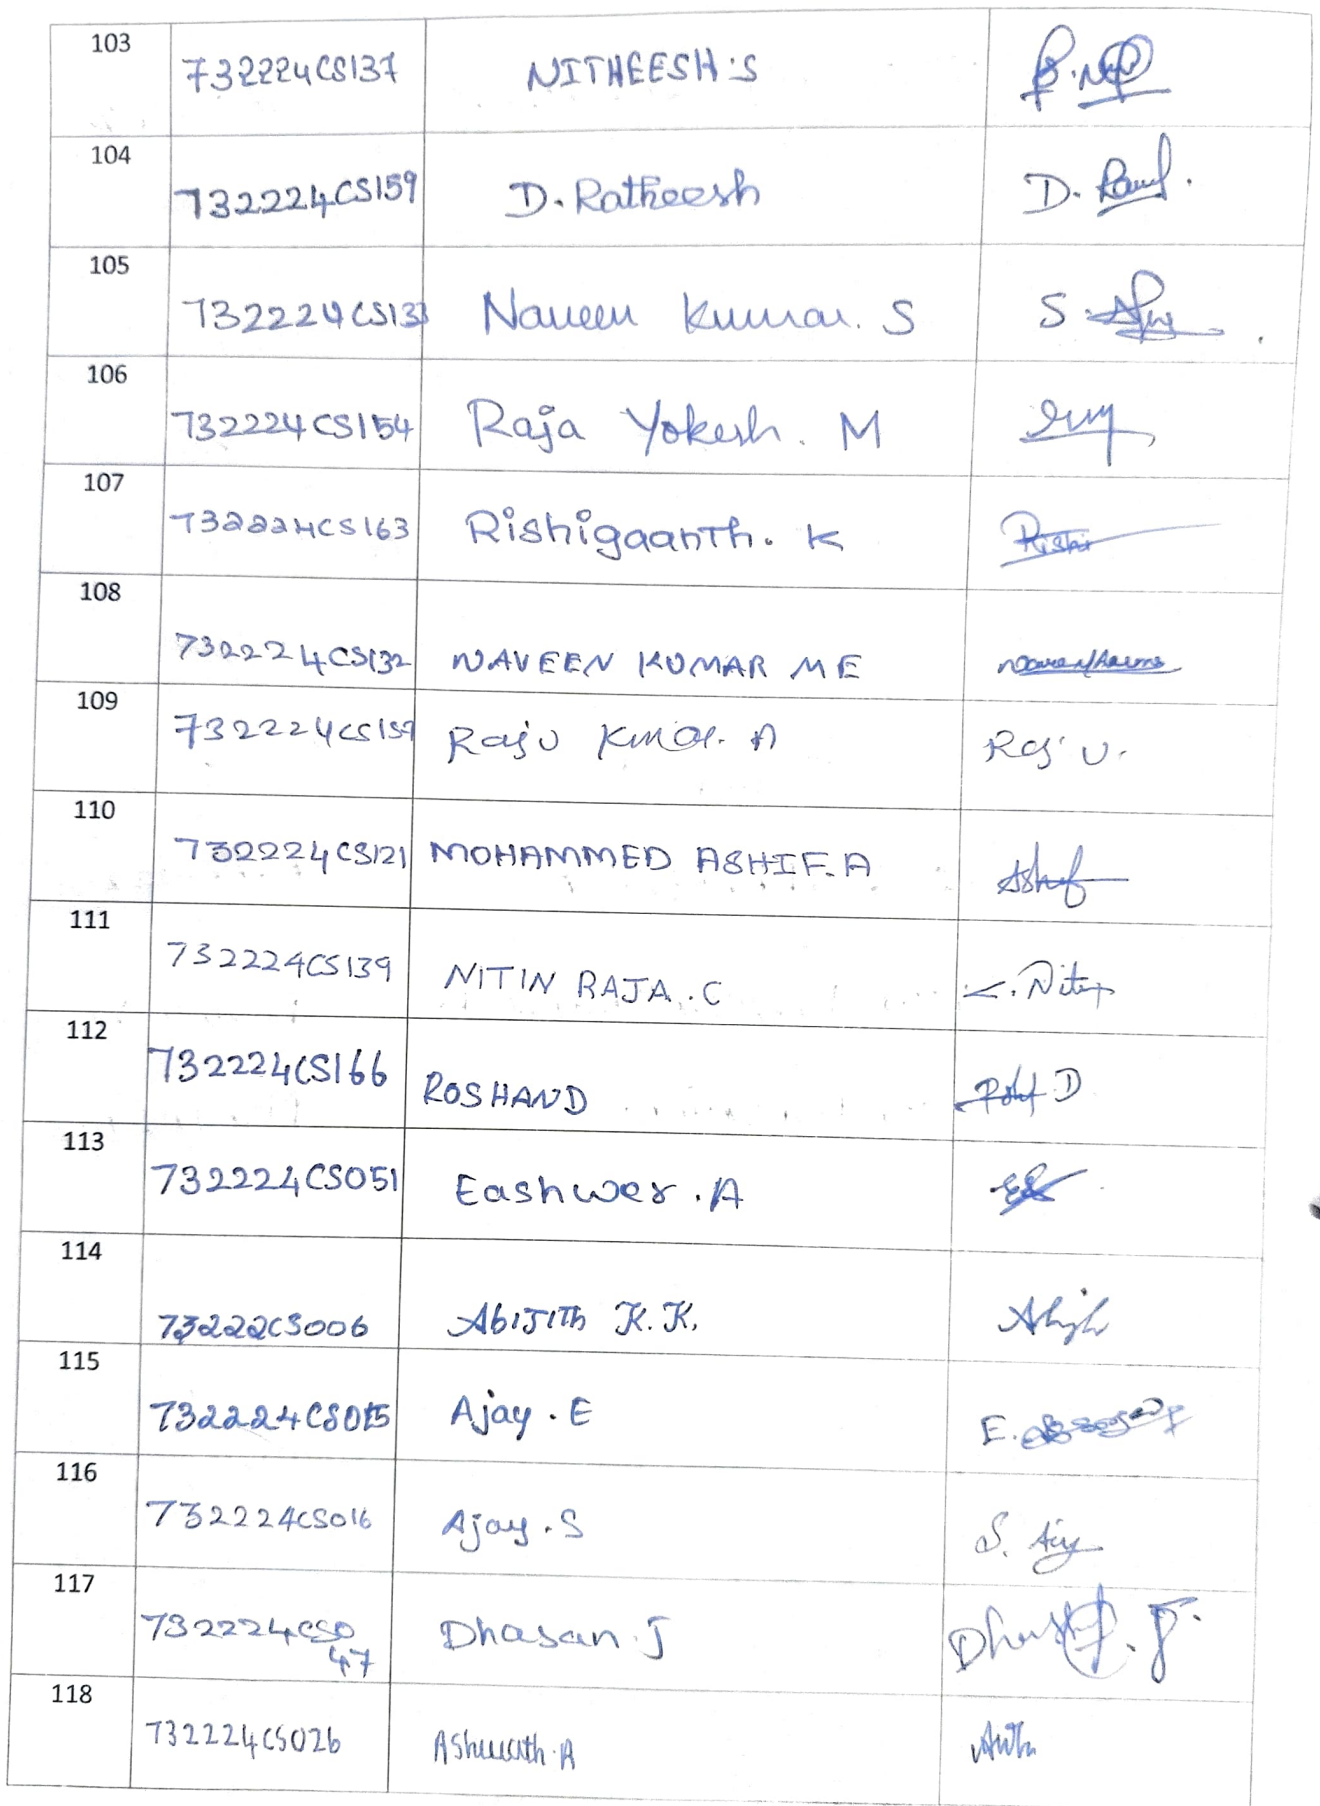 103 732224CS137 NITHEESH.S
104 732224CS159 D. Ratheesh D.
105 732224CS133 Naveen Kumar. S S.
106 732224CS154 Raja Yokesh. M
107 732224CS163 Rishigaanth. K Rishi
108 732224CS132 NAVEEN KUMAR ME
109 Raju Kmar. A Raju.
110 732224CS121 MOHAMMED ASHIF.A Ashif
111 732224CS139 NITIN RAJA.C
112 732224CS166 ROSHAN D D
113 732224CS051 Eashwer.A
114 73222CS006 Abijith K.K.
115 732224CS015 Ajay.E E.
116 732224CS016 Ajay.S S.
117 732224CS0
47 Dhasan J
118 732224CS026 Ashwath.A